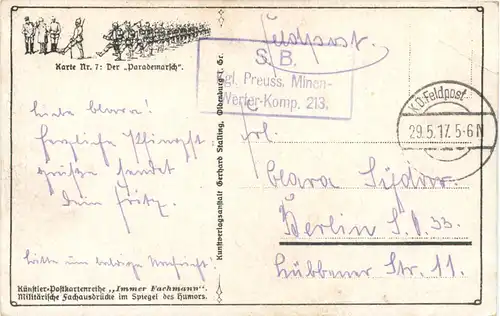 Karte Nr. 7: Der „Parademarsch“.
Liebe Clara!
Herzliche Pfingst-
grüße sendet
Dein Fritz.
Bitte um baldige Nachricht!
Künstler-Postkartenreihe „Immer Fachmann“.
Militärische Fachausdrücke im Spiegel des Humors.
Kunstverlagsanstalt Gerhard Stalling, Oldenburg i. Gr.
Feldpost.
S. B.
Kgl. Preuss. Minen-
Werfer-Komp. 213.
K.D. Feldpost
29.5.17. 5-6 N
Frl.
Clara Sydow.
Berlin S.O. 33.
Lübbener Str. 11.